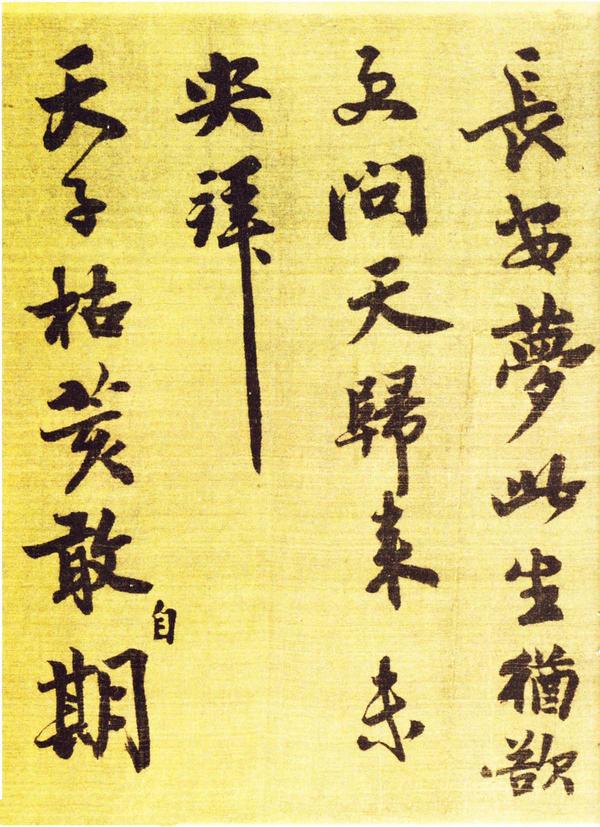 長安夢此生猶欲
更問天歸来未
央拜
天子枯荄敢自期